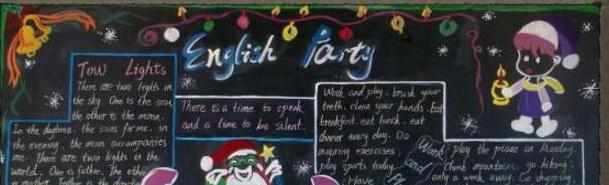 English Party
Tow Lights
There are two lights in
the sky. One is the sun
the other is the moon.
In the daytime, the sun for me. in
the evening, the moon accompanies
me. There are two lights in the
world. One is father. The other
There is a time to speak
and a time to be silent.
Work and play: brush your
teeth. clean your hands. Eat
breakfast. eat lunch. eat
dinner every day. Do
morning exercises.
play sports today.
Have
Work
and
play the piano in Monday.
climb mountain. go hiking.
only a week away. Go shopping.